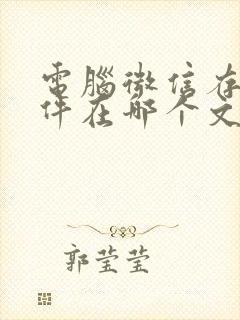 電腦微信存
件在哪个文
郭莹莹